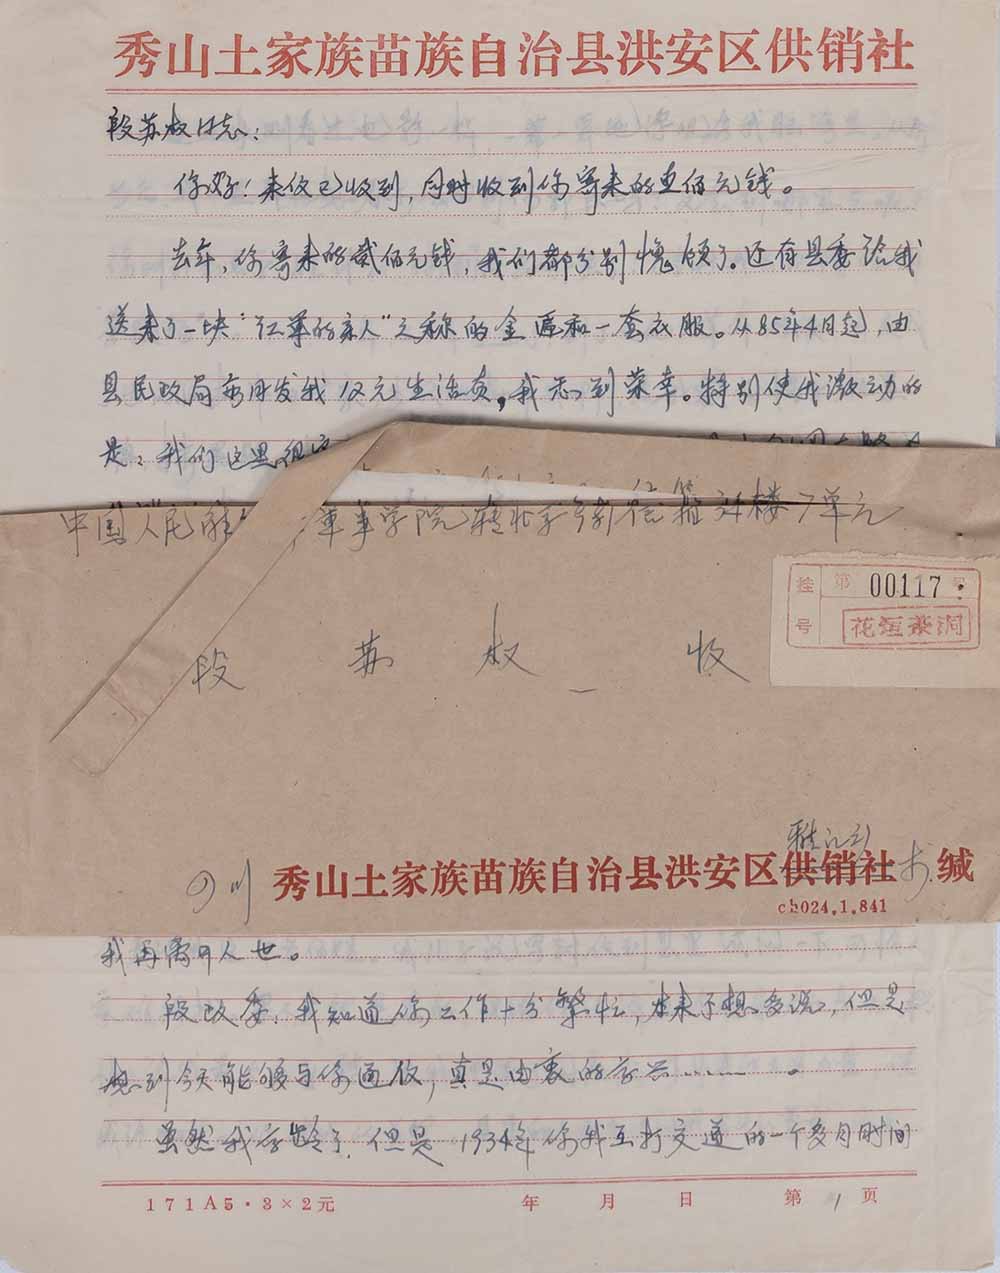 秀山土家族苗族自治县洪安区供销社
段苏权同志:
你好!来信已收到,同时收到你寄来的壹佰元钱。
去年,你寄来的贰佰元钱,我们都分别愧领了。还有县委给我
送来了一块"红军的亲人"之称的金匾和一套衣服。从85年4月起,由
县民政局每月发我12元生活费,我感到荣幸。特别使我激动的
是:我们这里很
中国人民解 軍事学院 转北京 楼7单元
段苏权 收
挂号 第00117号
花垣茶洞
四川 秀山土家族苗族自治县洪安区供销社 缄
ch024.1.841
我再离开人世。
段政委,我知道你工作十分繁忙,本来不想多说,但是
想到今天能够与你通信,真是由衷的高兴………。
虽然我年龄了,但是1934年你我互打交道的一个多月时间
171A5·3×2元 年 月 日 第1页